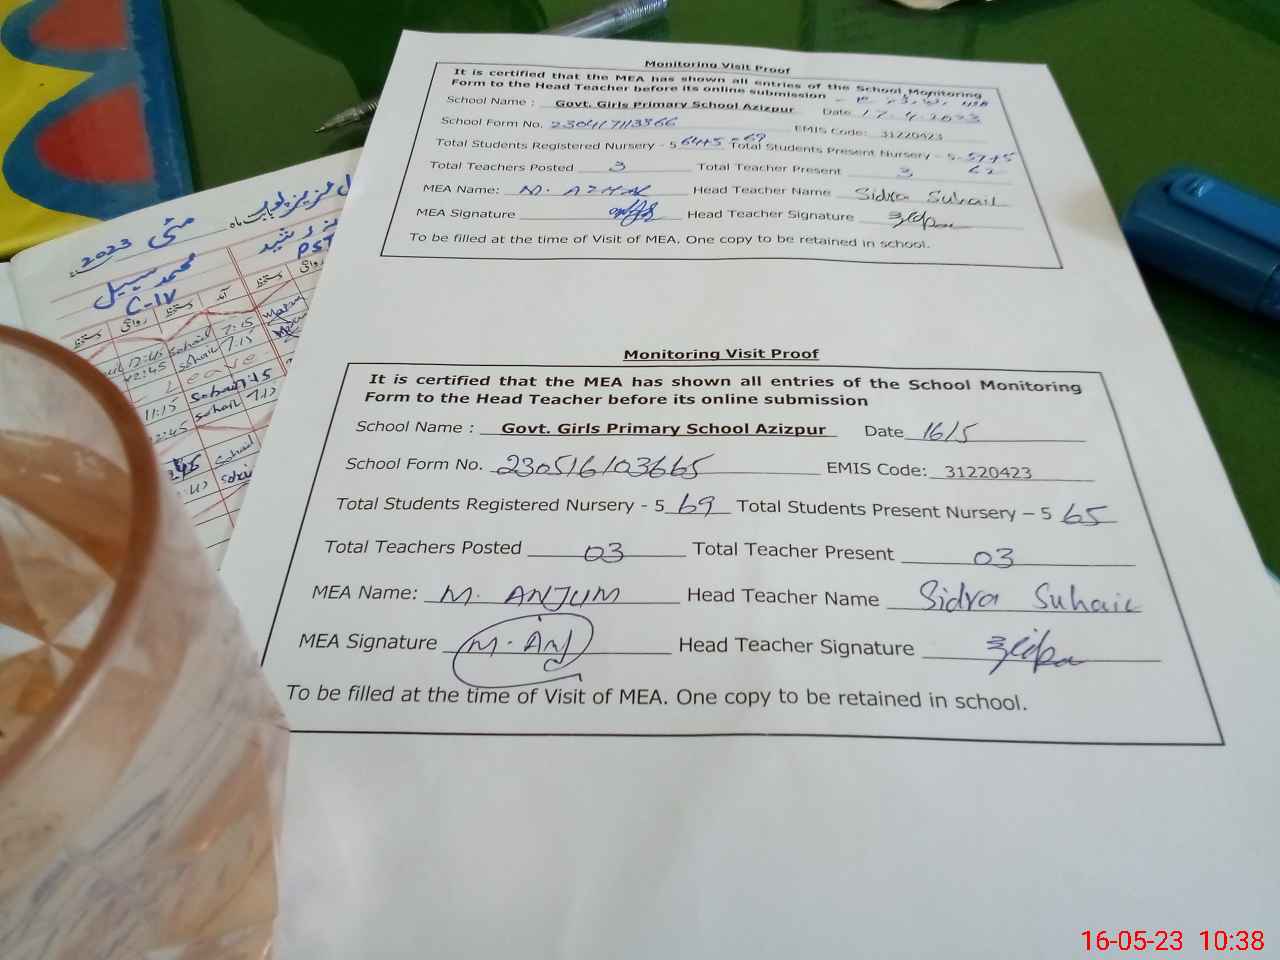 Monitoring Visit Proof
It is certified that the MEA has shown all entries of the School Monitoring
Form to the Head Teacher before its online submission
School Name : Govt. Girls Primary School Azizpur Date 17.4.2023
School Form No. 230417113366 EMIS Code: 31220423
Total Students Registered Nursery - 5 64+5=69 Total Students Present Nursery - 5 57+5
62
Total Teachers Posted 3 Total Teacher Present 3
MEA Name: M. AZHAR Head Teacher Name Sidra Suhail
MEA Signature Head Teacher Signature
To be filled at the time of Visit of MEA. One copy to be retained in school.
Monitoring Visit Proof
It is certified that the MEA has shown all entries of the School Monitoring
Form to the Head Teacher before its online submission
School Name : Govt. Girls Primary School Azizpur Date 16/5
School Form No. 230516103665 EMIS Code: 31220423
Total Students Registered Nursery - 5 69 Total Students Present Nursery – 5 65
Total Teachers Posted 03 Total Teacher Present 03
MEA Name: M. ANJUM Head Teacher Name Sidra Suhail
MEA Signature M. Anj Head Teacher Signature
To be filled at the time of Visit of MEA. One copy to be retained in school.
مئی 2023
محمد سہیل
C-IV
PST
دستخط روانگی دستخط آمد
12:45 sohail 7:15
12:45 sohail 7:15
Leave
11:15 sohail 7:15
12:45 sohail 7:15
16-05-23 10:38